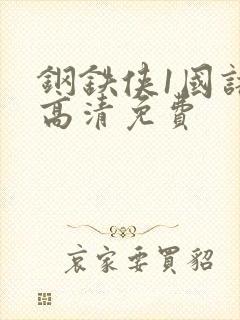 鋼鉄俠1國語
高清免費
哀家要買貂